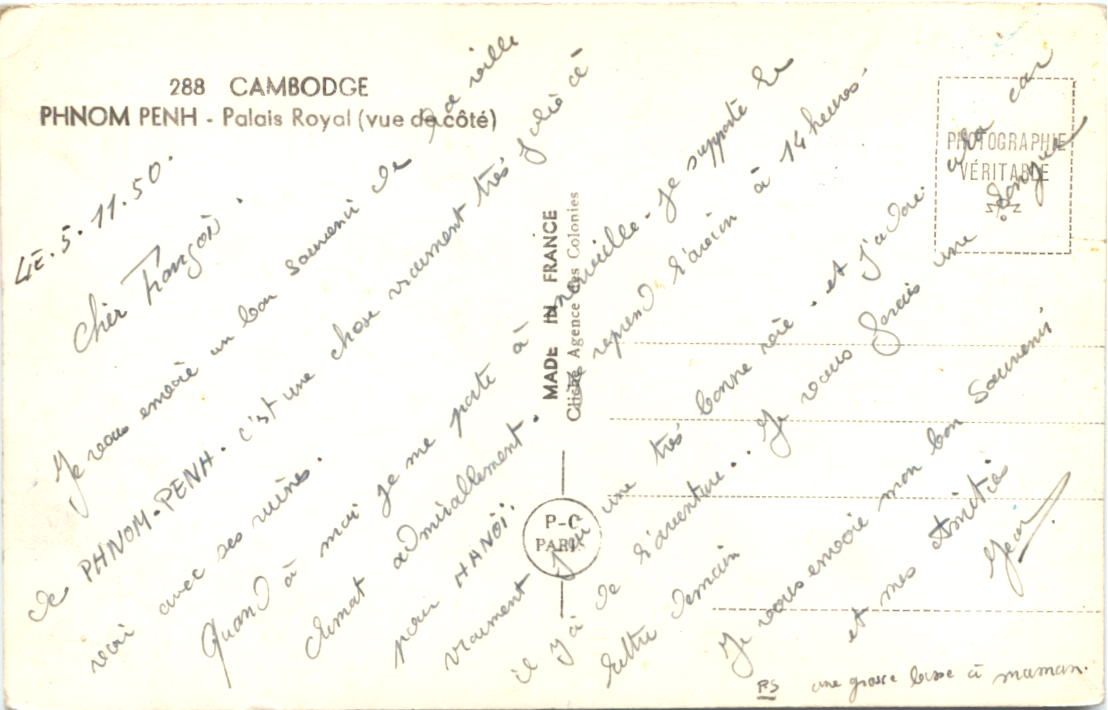 288 CAMBODGE
PHNOM PENH - Palais Royal (vue de côté)
PHOTOGRAPHIE
VÉRITABLE
MADE IN FRANCE
Cliché Agence des Colonies
P-C
PARIS
LE. 5. 11. 50.
Cher François.
Je vous envoie un bon souvenir de la ville
de PHNOM-PENH. c'est une chose vraiment très jolie à
voir avec ses ruines.
Quand à moi je me porte à merveille - je supporte le
climat admirablement. Je reprend l'avion à 14 heures
pour HANOÏ.
vraiment une très bonne vie - et j'adore cela car
il y a de l'aventure.. Je vous ferais une longue
lettre demain
Je vous envoie mon bon souvenir
et mes Amitiés
Jean
PS une grosse bise à maman.